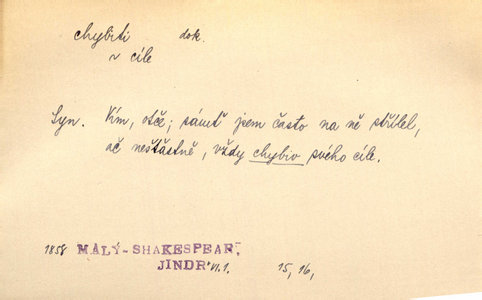 chybiti dok.
~ cíle
Syn. Vím, otče; sámť jsem často na ně střílel,
ač nešťastně, vždy chybiv svého cíle.
1858 MALÝ-SHAKESPEAR,
JINDR. VI.1. 15, 16,